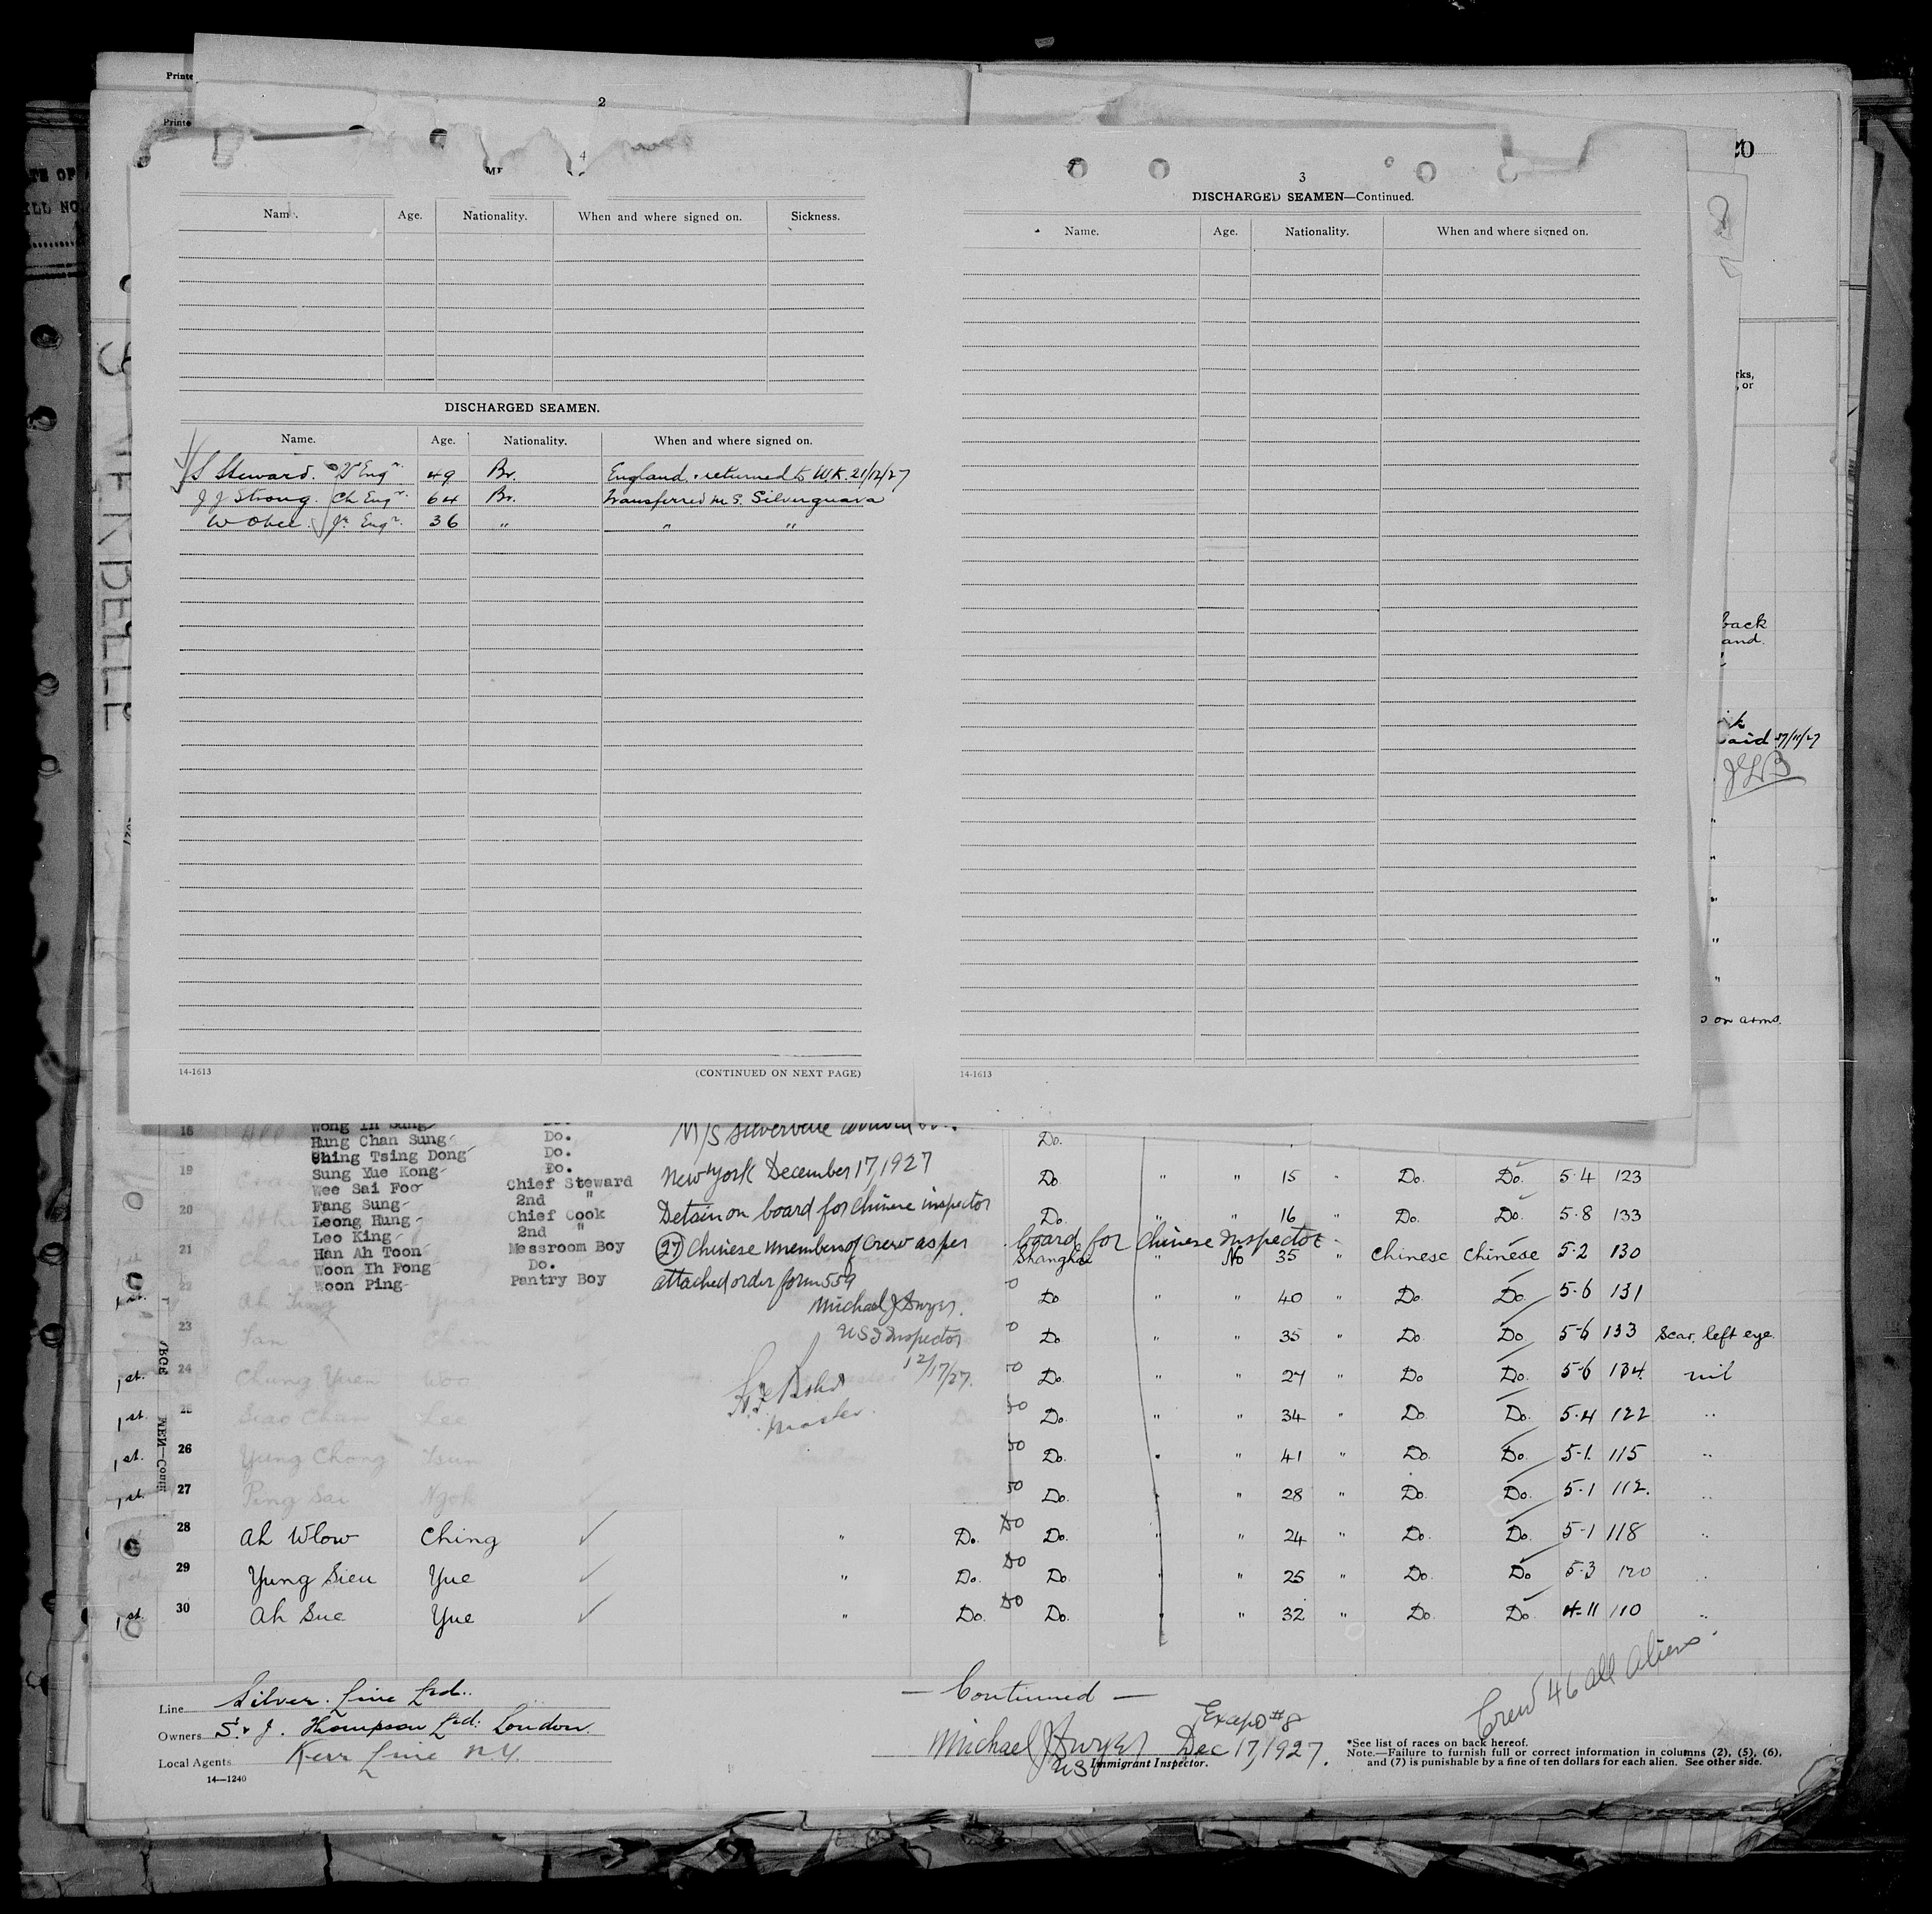 Printe
2
Printe
20
4
3
DISCHARGED SEAMEN—Continued.
Nam . Age. Nationality. When and where signed on. Sickness.
Name. Age. Nationality. When and where signed on.
DISCHARGED SEAMEN.
Name. Age. Nationality. When and where signed on.
S Steward. Engr. 49 Br. England. returned to U.K. 21/12/27
J J Strong. Ch Engr. 64 Br. Transferred M S. Silverguava
W Jr Engr. 36 " " "
14-1613 (CONTINUED ON NEXT PAGE)
14-1613
rks,
, or
back
and.
aid 27/11/27
s on arms.
18
Hung Chan Sung Do. Do.
Ching Tsing Dong Do.
19 Sung Yue Kong Do. New York December 17, 1927 Do " " 15 " Do. Do. 5·4 123
Wee Sai Foo Chief Steward
20 Fang Sung 2nd " Detain on board for chinese inspector Do. " " 16 " Do. Do. 5·8 133
Leong Hung Chief Cook
Leo King 2nd " board for Chinese Inspector
21 Han Ah Toon Messroom Boy (27) Chinese members of crew as per Shanghai " No 35 " Chinese Chinese 5·2 130
Woon Ih Fong Do.
22 Woon Ping Pantry Boy attached order form 559 Do " " 40 " Do. Do. 5·6 131
Michael J Dwyer.
23 Do " " 35 " Do. Do 5·6 133 Scar, left eye.
U S I Inspector
12/17/27.
1st. 24 Chung Yuen Woo Do. " " 27 " Do Do. 5·6 134 nil
Master.
1st. 25 Siao Chun Lee Do. " " 34 " Do. Do. 5·4 122 "
1st. 26 Yung Chong Tsun Do. " " 41 " Do. Do. 5·1. 115 "
1st. 27 Ping Sai Ngok Do. " " 28 " Do. Do. 5·1 112. "
28 Ah Wlow Ching " Do. Do Do. " " 24 " Do. Do. 5·1 118 "
29 Yung Sieu Yue " Do. Do Do. " " 25 " Do. Do 5·3 120 "
1st. 30 Ah Sue Yue " Do. Do Do. " " 32 " Do. Do. 4·11 110 "
MEN—Contd
Crew 46 all aliens.
— Continued —
Line Silver Line Ltd.
Owners S. & J. Thompson Ltd. London.
Local Agents Kerr Line N.Y.
14—1240
Michael J Dwyer Dec 17, 1927.
US Immigrant Inspector.
*See list of races on back hereof.
Note.—Failure to furnish full or correct information in columns (2), (5), (6),
and (7) is punishable by a fine of ten dollars for each alien. See other side.